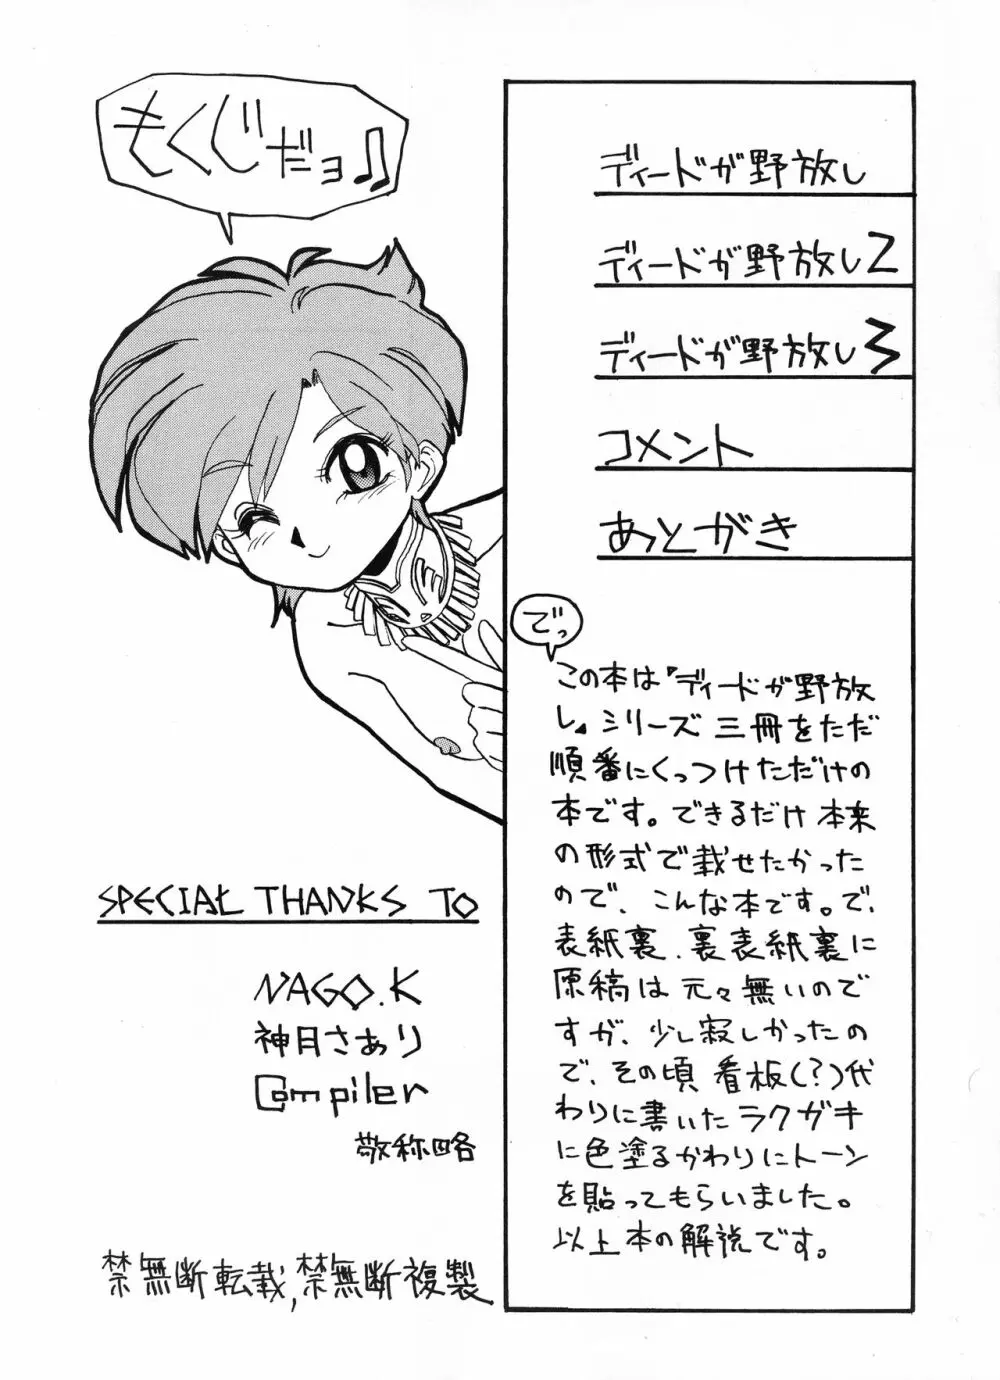 もくじだョ♫
ディードが野放し
ディードが野放し2
ディードが野放し3
コメント
あとがき
でっ
この本は『ディードが野放
し』シリーズ 三冊をただ
順番にくっつけただけの
本です。できるだけ 本来
の形式で載せたかった
ので、こんな本です。で、
表紙裏、裏表紙裏に
原稿は元々無いのですが、
すが、少し寂しかったの
で、その頃 看板(?)代
わりに書いたラクガキ
に色塗るかわりにトーン
を貼ってもらいました。
以上本の解説です。
SPECIAL THANKS TO
NAGO.K
神月さぁり
Compiler
敬称略
禁無断転載,禁無断複製